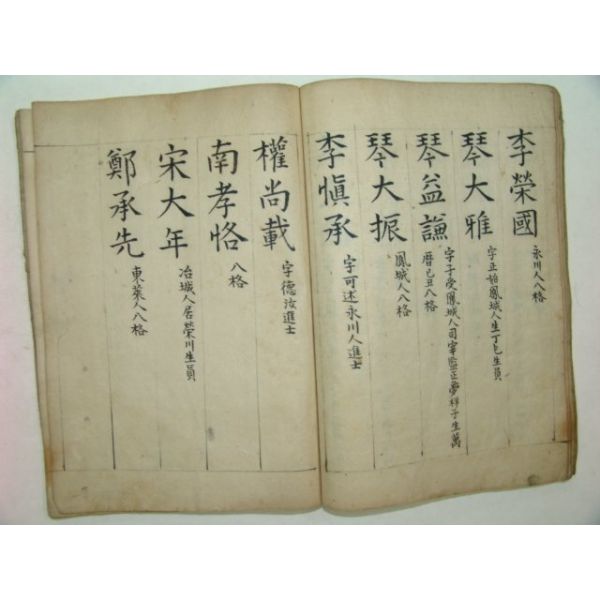 李榮國 永川人入格
琴大雅 字正始鳳城人生丁巳生員
琴益謙 字子受鳳城人司宰監正夢祥子生萬曆己丑入格
琴大振 鳳城人入格
李愼承 字可述永川人進士
權尚載 字德汝進士
南孝恪 入格
宋大年 冶城人居榮川生員
鄭承先 東萊人入格